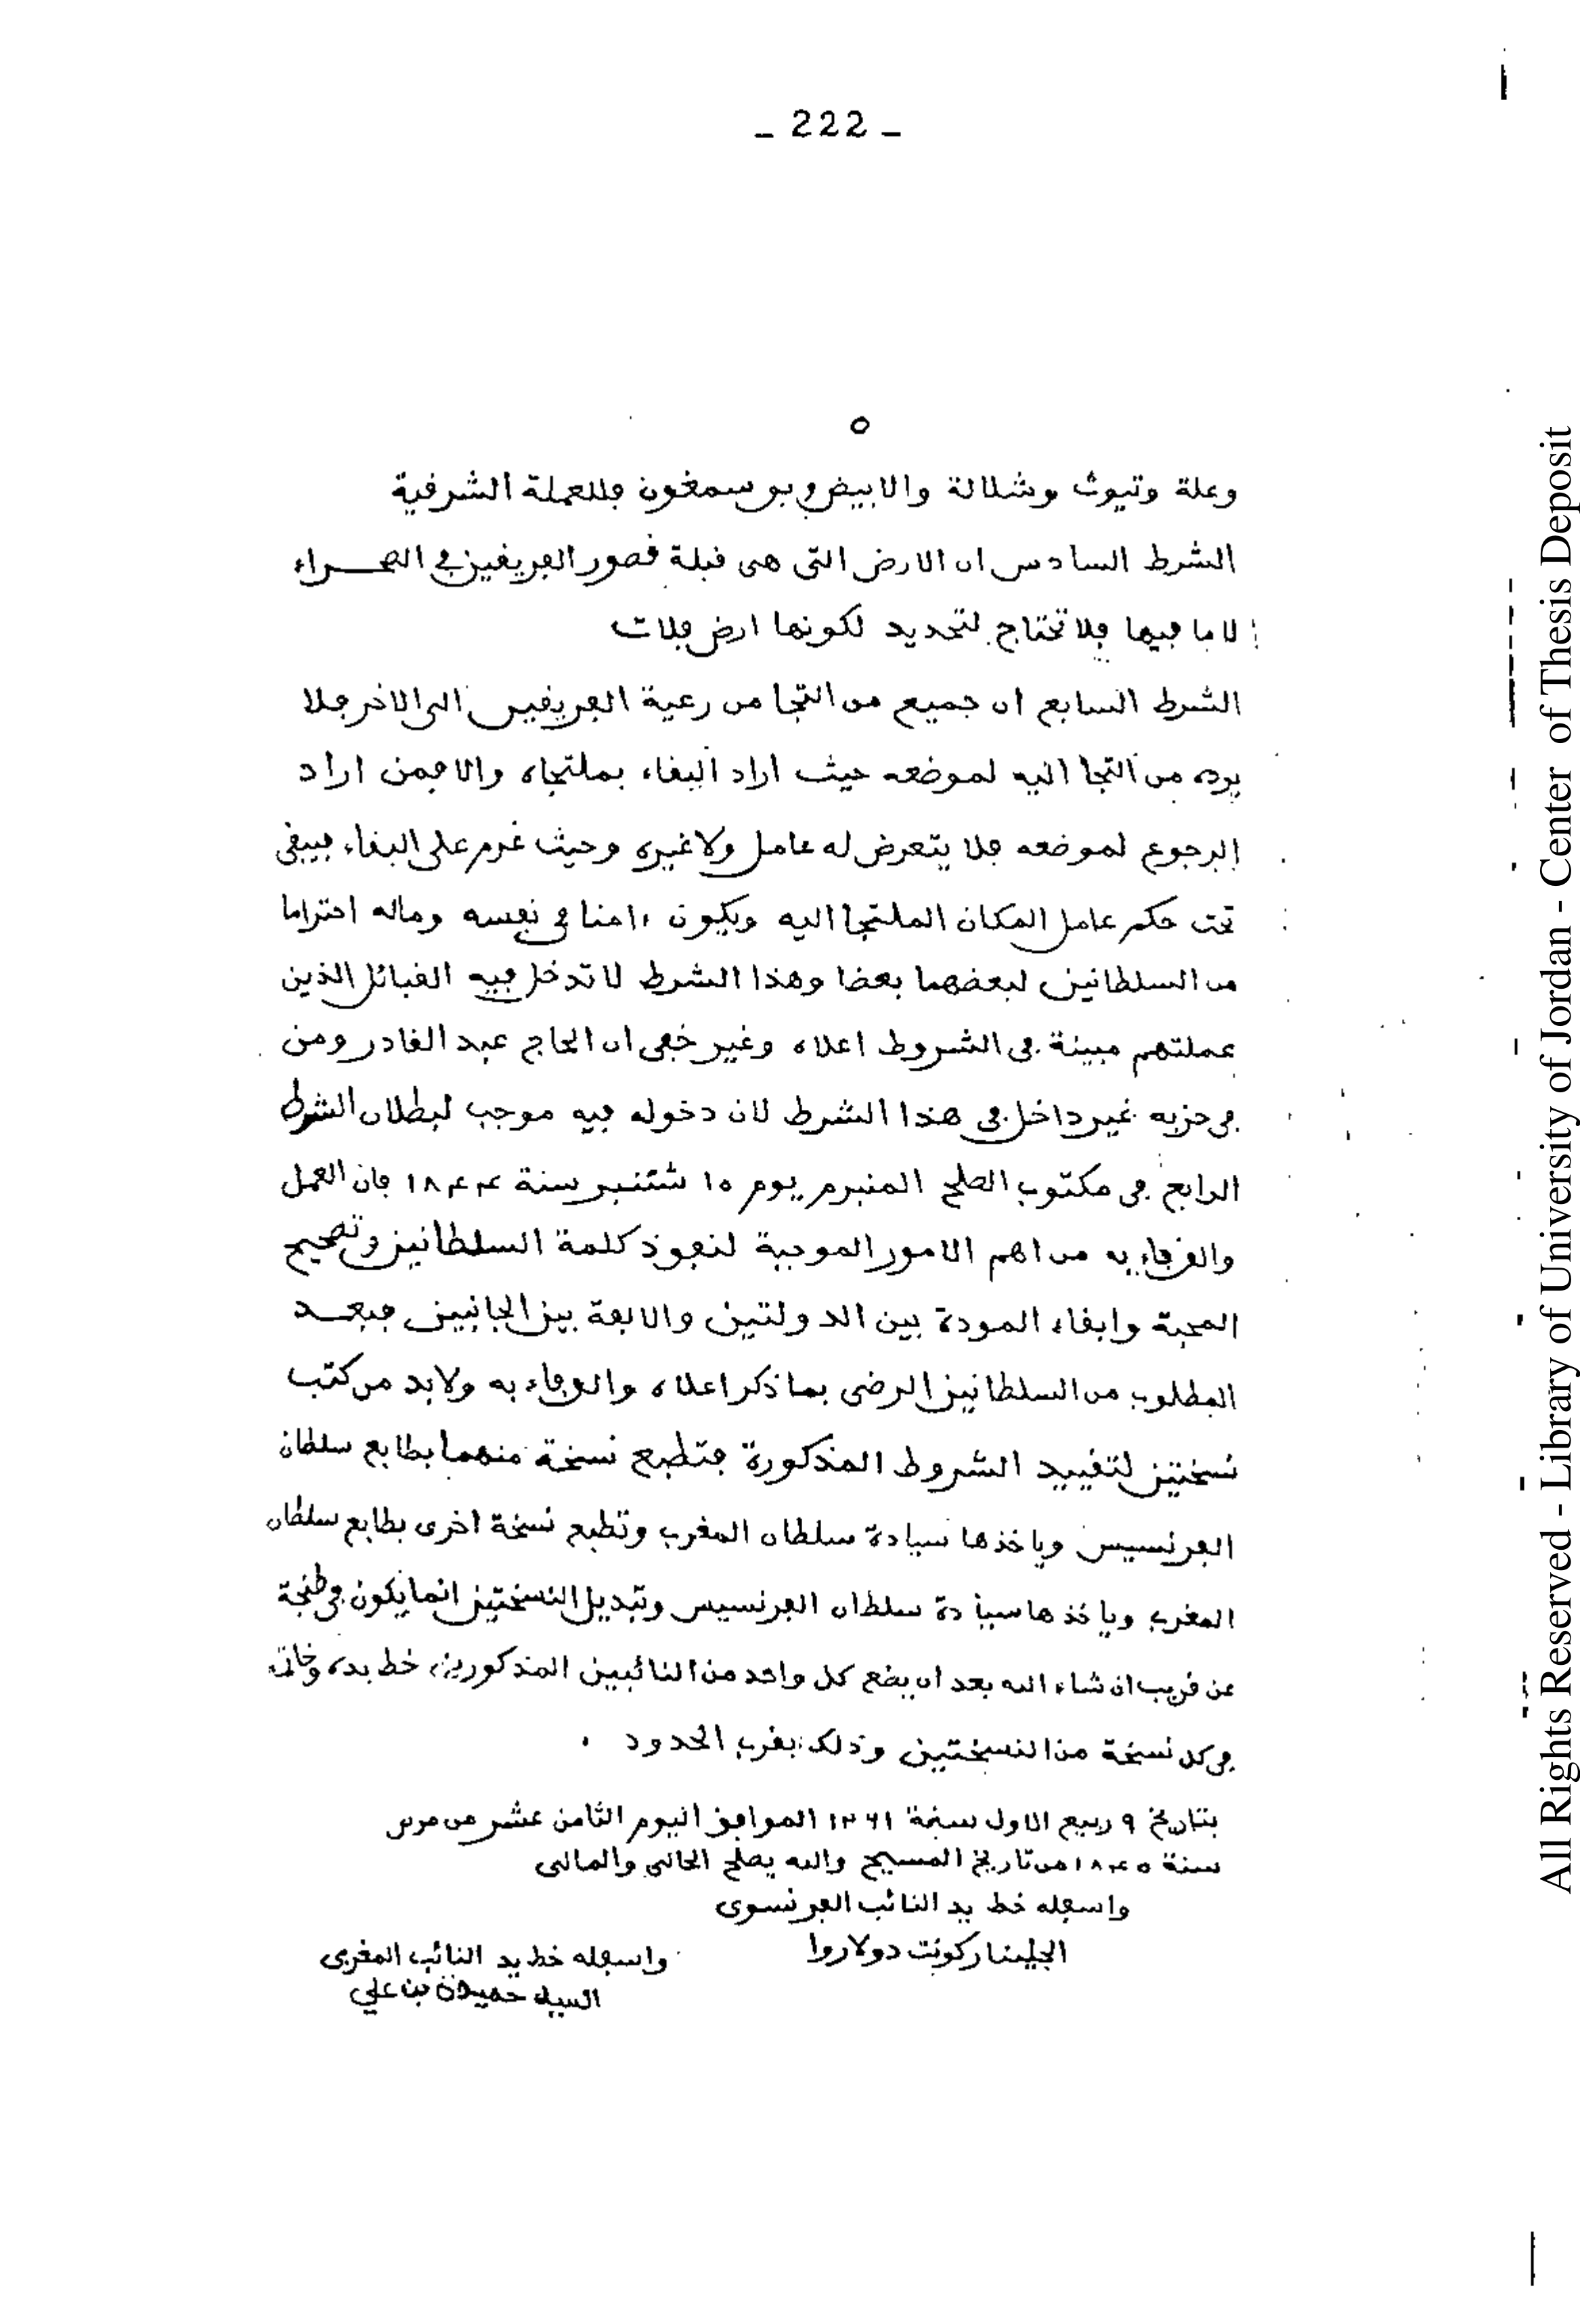 - 222 -
٥
وعلة وتيوت وشلالة والابيض وبو سمغون فللعملة الشرقية
الشرط السادس ان الارض التى هى قبلة قصور الفريقين في الصحراء
لا ما فيها فلا تحتاج لتحديد لكونها ارض فلات
الشرط السابع ان جميع من التجا من رعية الفريقين الى الاخر فلا
يرده من التجا اليه لموضعه حيث اراد البقاء بملتجاه والا فمن اراد
الرجوع لموضعه فلا يتعرض له عامل ولا غيره وحيث عزم على البقاء فيبقى
تحت حكم عامل المكان الملتجا اليه ويكون ءامنا في نفسه وماله احتراما
من السلطانين لبعضهما بعضا وهذا الشرط لا تدخل فيه القبائل الذين
عملتهم مبينة في الشروط اعلاه وغير خفى ان الحاج عبد القادر ومن
في حزبه غير داخل في هذا الشرط لان دخوله فيه موجب لبطلان الشرط
الرابع في مكتوب الصلح المنبرم يوم ١٥ شتنبر سنة ١٨٤٤ فان العمل
والوفاء به من اهم الامور الموجبة لنفوذ كلمة السلطانين وتصحيح
المحبة وابقاء المودة بين الدولتين والالفة بين الجانبين فبعد
المطلوب من السلطانين الرضى بما ذكر اعلاه والوفاء به ولابد من كتب
نسختين لتقييد الشروط المذكورة فتطبع نسخة منهما بطابع سلطان
الفرنسيس وياخذها سيادة سلطان المغرب وتطبع نسخة اخرى بطابع سلطان
المغرب وياخذها سيادة سلطان الفرنسيس وتبديل النسختين انما يكون في طنجة
عن قريب ان شاء الله بعد ان يضع كل واحد من النائبين المذكورين خط يده وخاتمه
في كل نسخة من النسختين وذلك بقرب الحدود .
بتاريخ ٩ ربيع الاول سنة ١٢٦١ الموافق اليوم الثامن عشر من مرس
سنة ١٨٤٥ من تاريخ المسيح والله يصلح الحال والمال
واسفله خط يد النائب الفرنسوى
الجلينار كونت دولاروا
واسفله خط يد النائب المغربى
السيد حميدة بن علي
All Rights Reserved - Library of University of Jordan - Center of Thesis Deposit